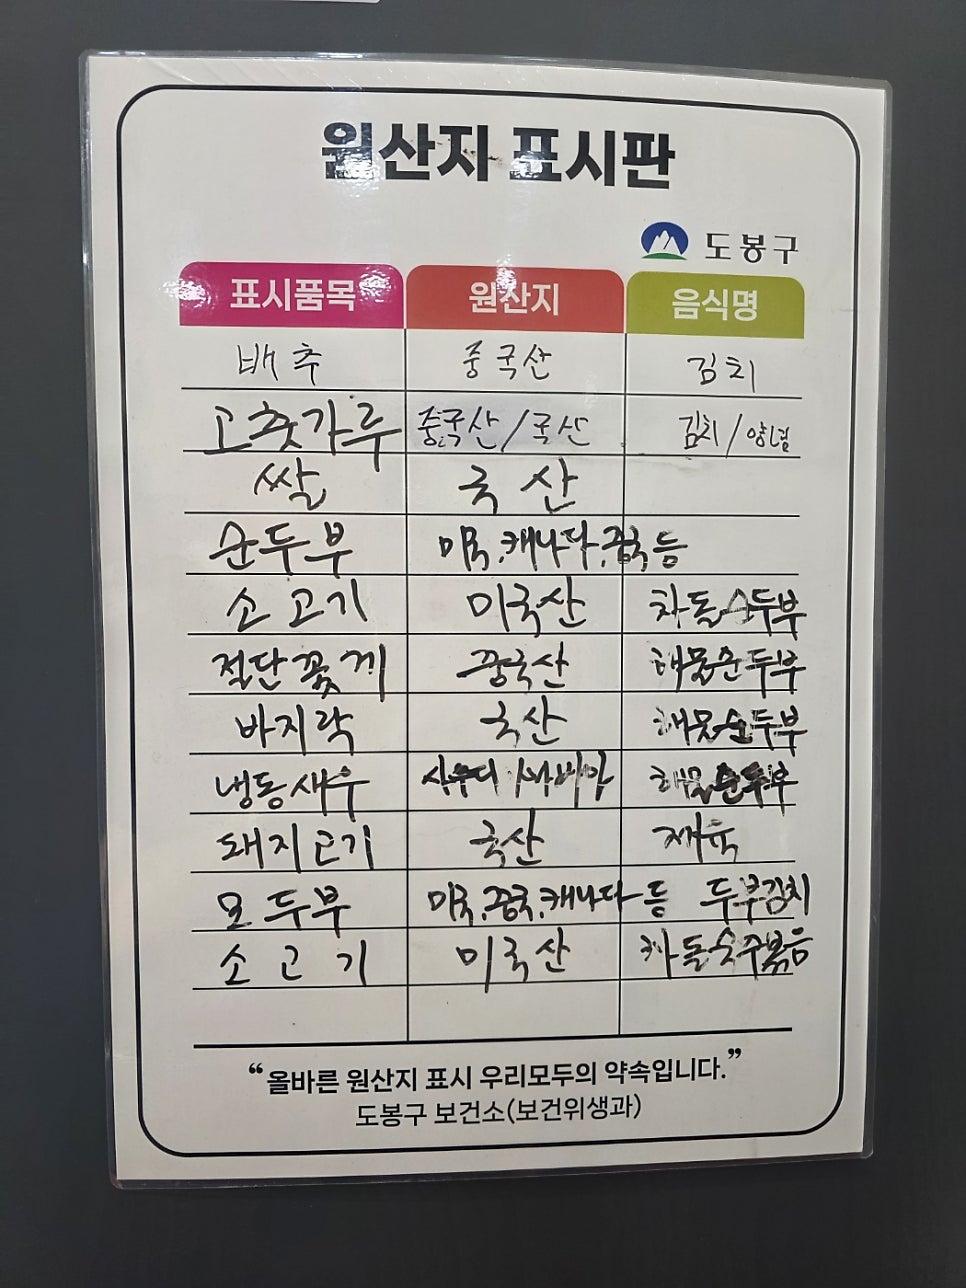 원산지 표시판
도봉구
표시품목 원산지 음식명
배추 중국산 김치
고춧가루 중국산/국산 김치/양념
쌀 국산
순두부 미국.캐나다.중국 등
소고기 미국산 차돌순두부
절단꽃게 중국산 해물순두부
바지락 국산 해물순두부
냉동새우 사우디아라비아 해물순두부
돼지고기 국산 제육
모두부 미국.중국.캐나다 등 두부김치
소고기 미국산 차돌숙주볶음
“올바른 원산지 표시 우리모두의 약속입니다.”
도봉구 보건소(보건위생과)